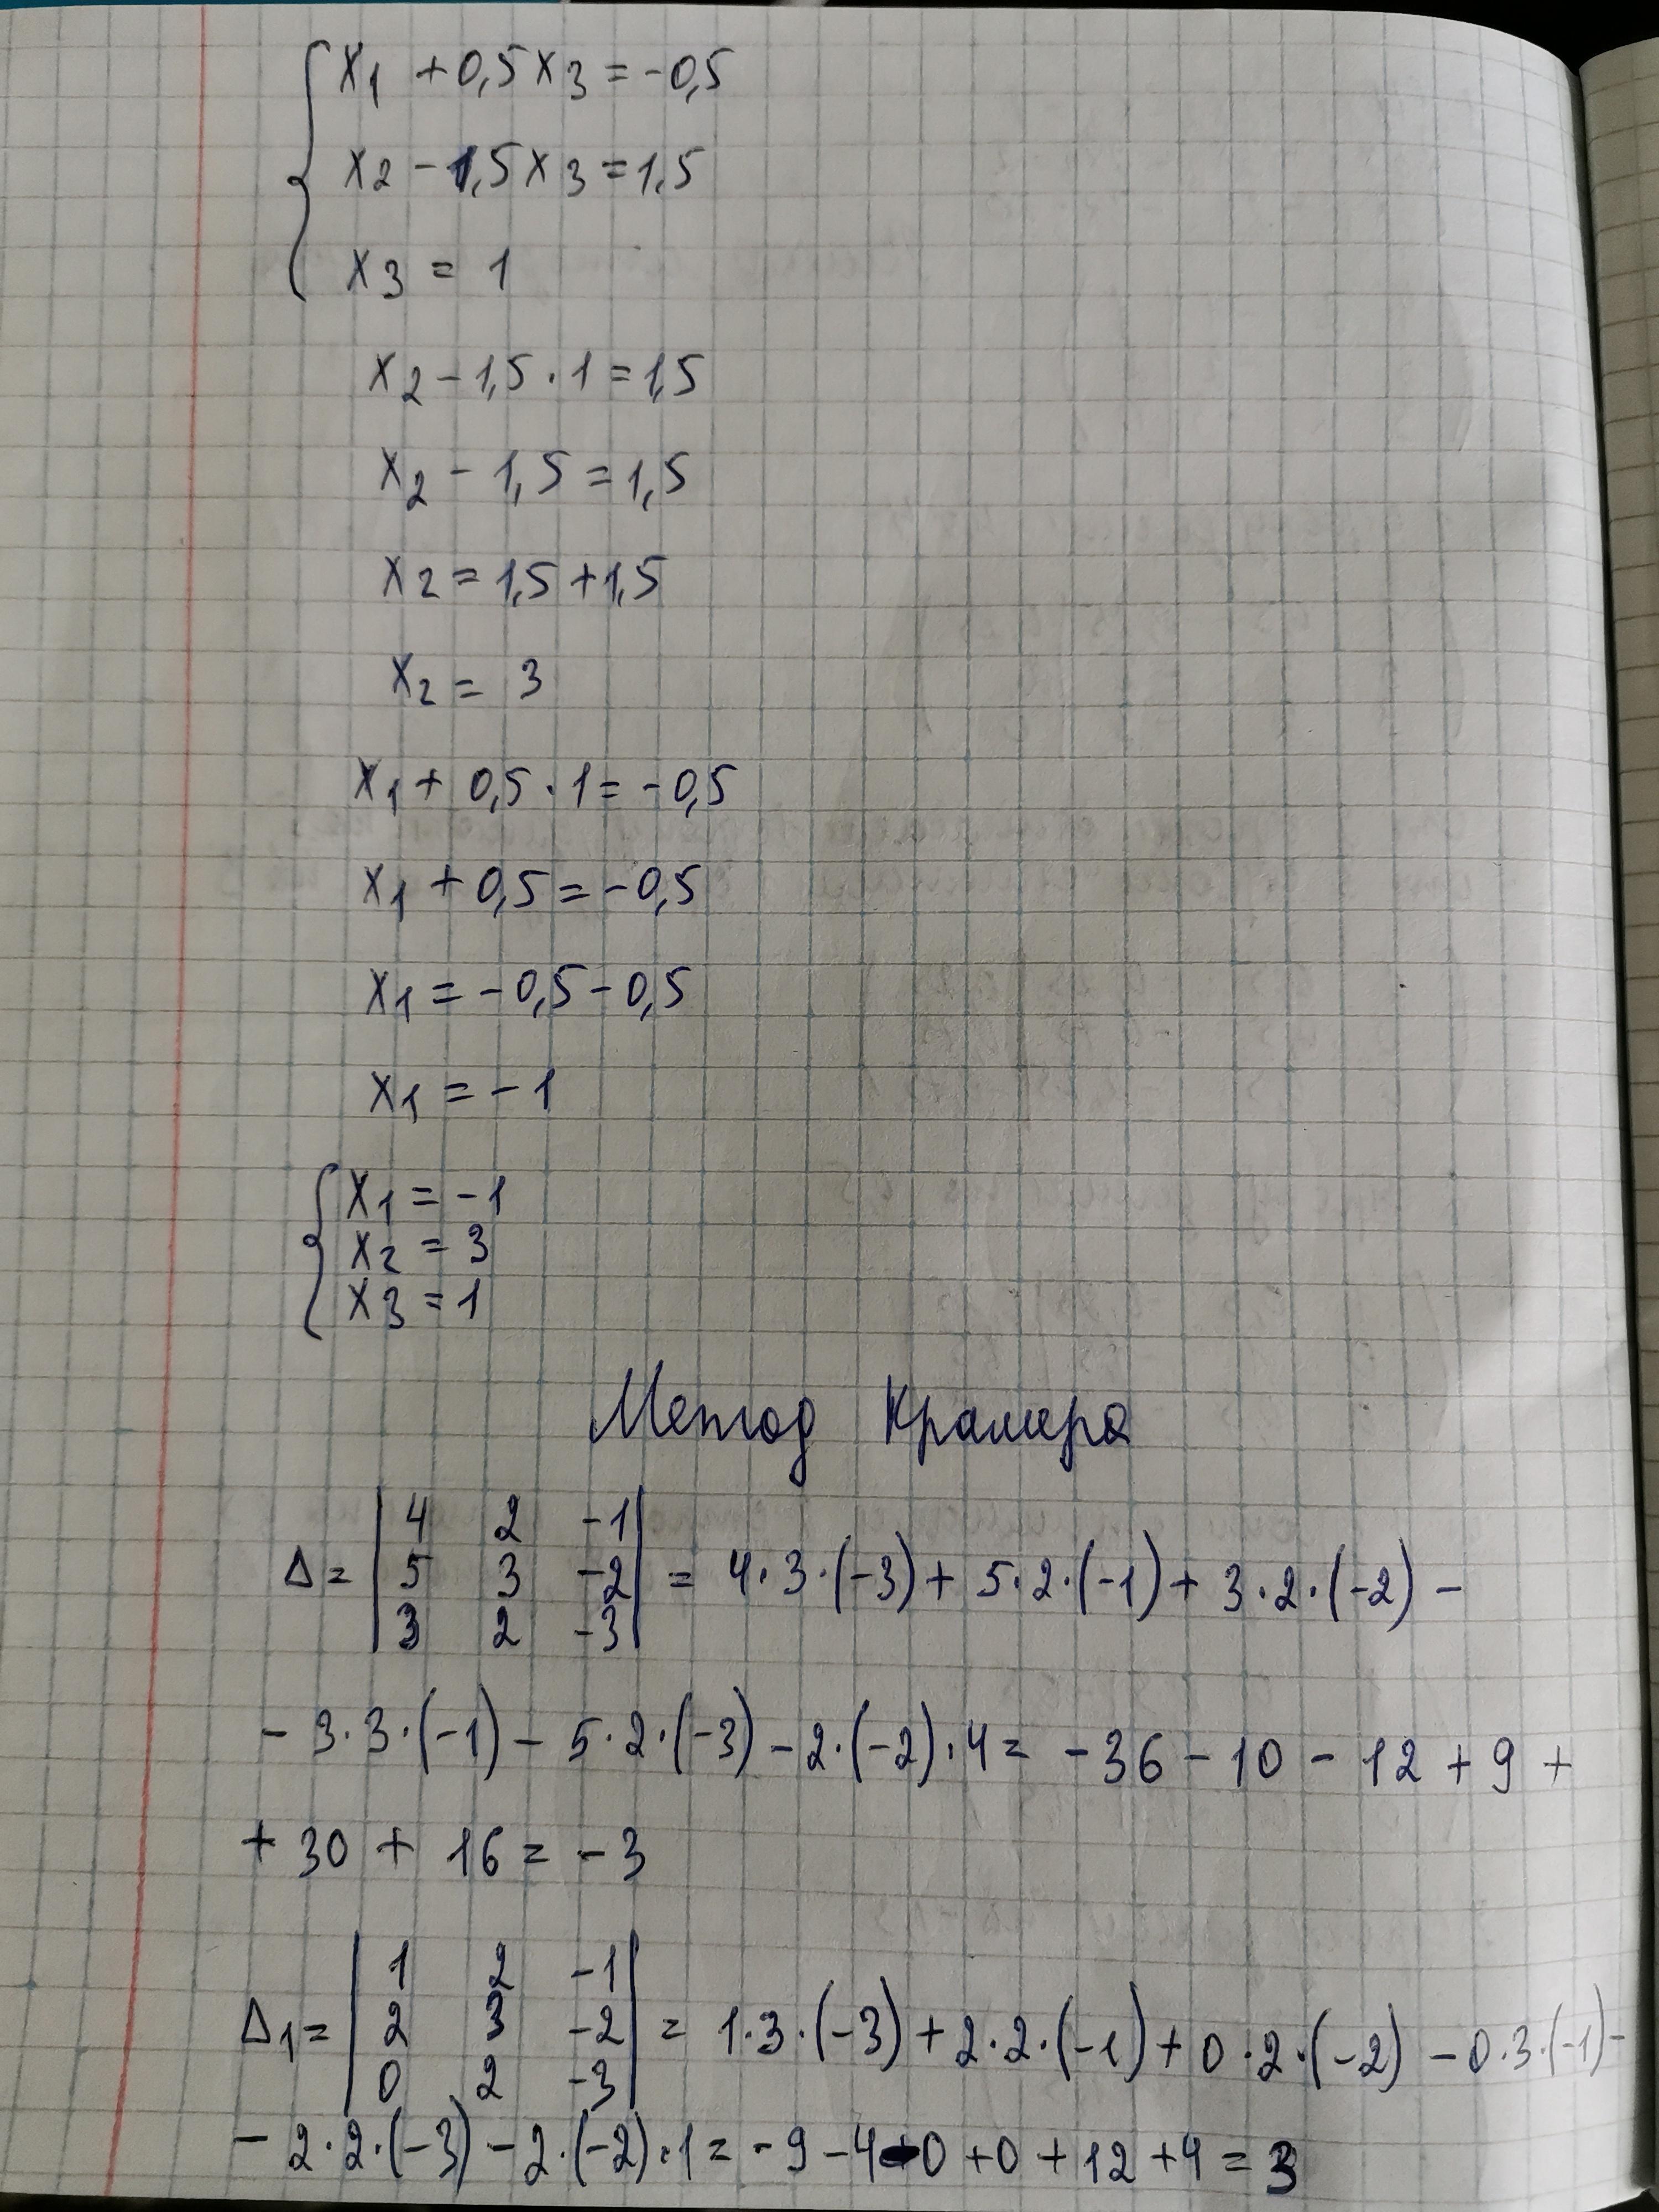 x1 + 0,5x3 = -0,5
x2 - 1,5x3 = 1,5
x3 = 1
x2 - 1,5 · 1 = 1,5
x2 - 1,5 = 1,5
x2 = 1,5 + 1,5
x2 = 3
x1 + 0,5 · 1 = -0,5
x1 + 0,5 = -0,5
x1 = -0,5 - 0,5
x1 = -1
x1 = -1
x2 = 3
x3 = 1
Метод Крамера
4 2 -1
Δ = | 5 3 -2 | = 4·3·(-3) + 5·2·(-1) + 3·2·(-2) -
3 2 -3
- 3·3·(-1) - 5·2·(-3) - 2·(-2)·4 = -36 - 10 - 12 + 9 +
+ 30 + 16 = -3
1 2 -1
Δ1 = | 2 3 -2 | = 1·3·(-3) + 2·2·(-1) + 0·2·(-2) - 0·3·(-1) -
0 2 -3
- 2·2·(-3) - 2·(-2)·1 = -9 - 4 - 0 + 0 + 12 + 4 = 3